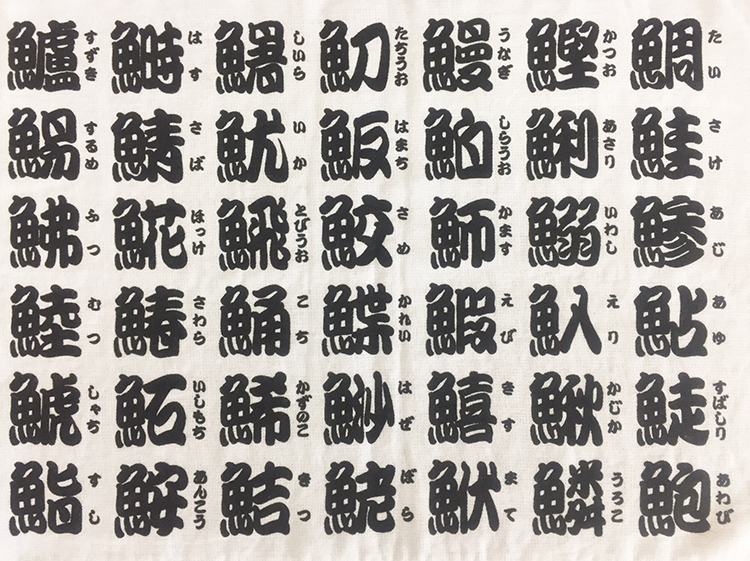 鯛 たい
鮭 さけ
鯵 あじ
鮎 あゆ
鯐 すばしり
鮑 あわび
鰹 かつお
鯏 あさり
鰯 いわし
魞 えり
鰍 かじか
鱗 うろこ
鰻 うなぎ
鮊 しらうお
魳 かます
鰕 えび
鱚 きす
鮲 まて
魛 たちうお
魬 はまち
鮫 さめ
鰈 かれい
鯋 はぜ
鮱 ぼら
鱪 しいら
魷 いか
𩹉 とびうお
鯒 こち
鯑 かずのこ
鮚 きつ
鰣 はす
鯖 さば
𩸽 ほっけ
鰆 さわら
鮖 いしもち
鮟 あんこう
鱸 すずき
鯣 するめ
鮄 ふつ
鯥 むつ
鯱 しゃち
鮨 すし